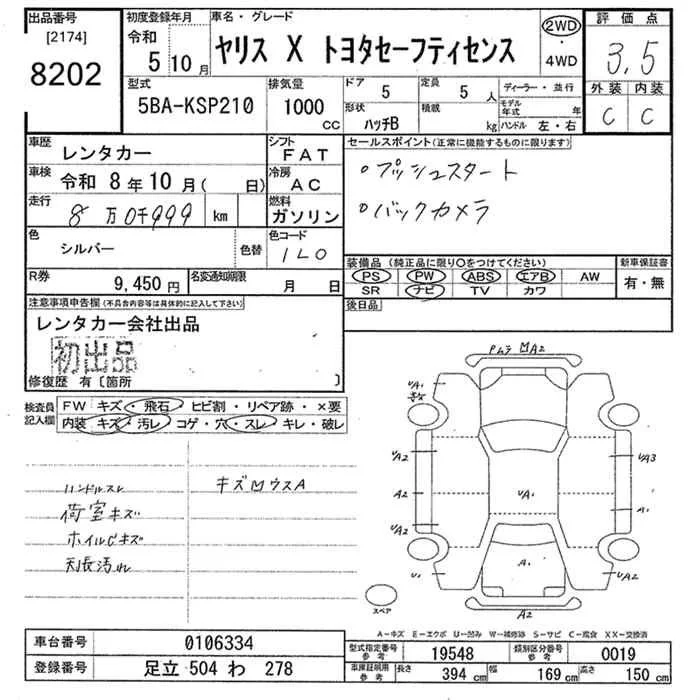 出品番号
[2174]
8202
初度登録年月
令和
5 10 月
車名・グレード
ヤリス X トヨタセーフティセンス
2WD
・
4WD
評価点
3.5
外装 内装
C C
型式
5BA-KSP210
排気量
1000
CC
ドア
5
定員
5 人
形状
ハッチB
積載
kg
ディーラー・並行
モデル年式 年
ハンドル 左・右
車歴
レンタカー
シフト
FAT
車検
令和 8年 10月( 日)
冷房
AC
走行
8万0千999 km
燃料
ガソリン
色
シルバー
色替
色コード
1L0
R券
9,450円
名変通知期限
月 日
セールスポイント(正常に機能するものに限ります)
○プッシュスタート
○バックカメラ
装備品(純正品に限り○をつけてください)
PS PW ABS エアB AW
SR ナビ TV カワ
新車保証書
有・無
後日品
注意事項申告欄(不具合内容等は具体的に記入して下さい)
レンタカー会社出品
初出品
修復歴 有〔箇所 〕
検査員
記入欄
FW キズ・飛石・ヒビ割・リペア跡・×要
内装 キズ・汚レ・コゲ・穴・スレ・キレ・破レ
ハンドルスレ
荷室キズ
ホイルCキズ
天張汚れ
UA1
UA2
A2
UA2
U1
UA1
A1
A2
UA3
A1
UA2
スペア
A-キズ E-エクボ U-凹み W-補修跡 S-サビ C-腐食 XX-交換済
車台番号
0106334
登録番号
足立 504 わ 278
型式指定番号
参考
19548
類別区分番号
参考
0019
車庫証明用
参考
長さ
394 cm
幅
169 cm
高さ
150 cm